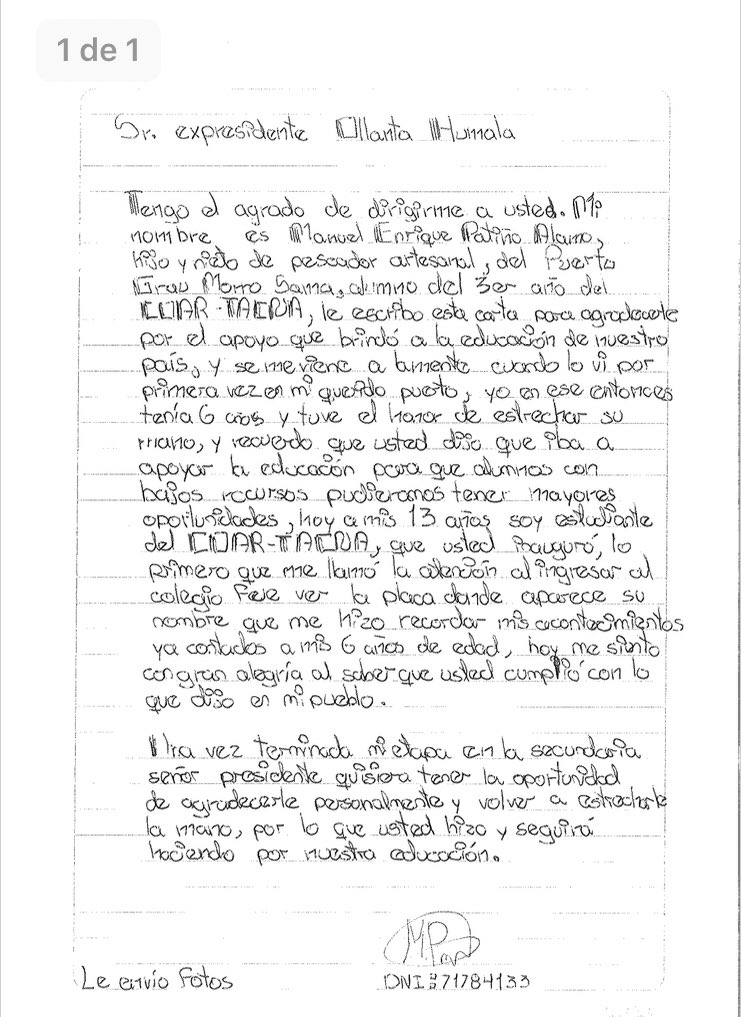 1 de 1
Sr. expresidente Ollanta Humala
Tengo el agrado de dirigirme a usted. Mi
nombre es Manuel Enrique Patiño Alamo,
hijo y nieto de pescador artesanal, del Puerto
Grau Morro Sama, alumno del 3er año del
COAR-TACNA, le escribo esta carta para agradecerle
por el apoyo que brindó a la educación de nuestro
país, y se me viene a la mente cuando lo vi por
primera vez en mi querido puerto, yo en ese entonces
tenía 6 años y tuve el honor de estrechar su
mano, y recuerdo que usted dijo que iba a
apoyar la educación para que alumnos con
bajos recursos pudieramos tener mayores
oportunidades, hoy a mis 13 años soy estudiante
del COAR-TACNA, que usted inauguró, lo
primero que me llamó la atención al ingresar al
colegio fue ver la placa donde aparece su
nombre que me hizo recordar mis acontecimientos
ya contados a mis 6 años de edad, hoy me siento
con gran alegría al saber que usted cumplió con lo
que dijo en mi pueblo.
Una vez terminada mi etapa en la secundaria
señor presidente quisiera tener la oportunidad
de agradecerle personalmente y volver a estrecharle
la mano, por lo que usted hizo y seguirá
haciendo por nuestra educación.
Le envio fotos
DNI: 71784133